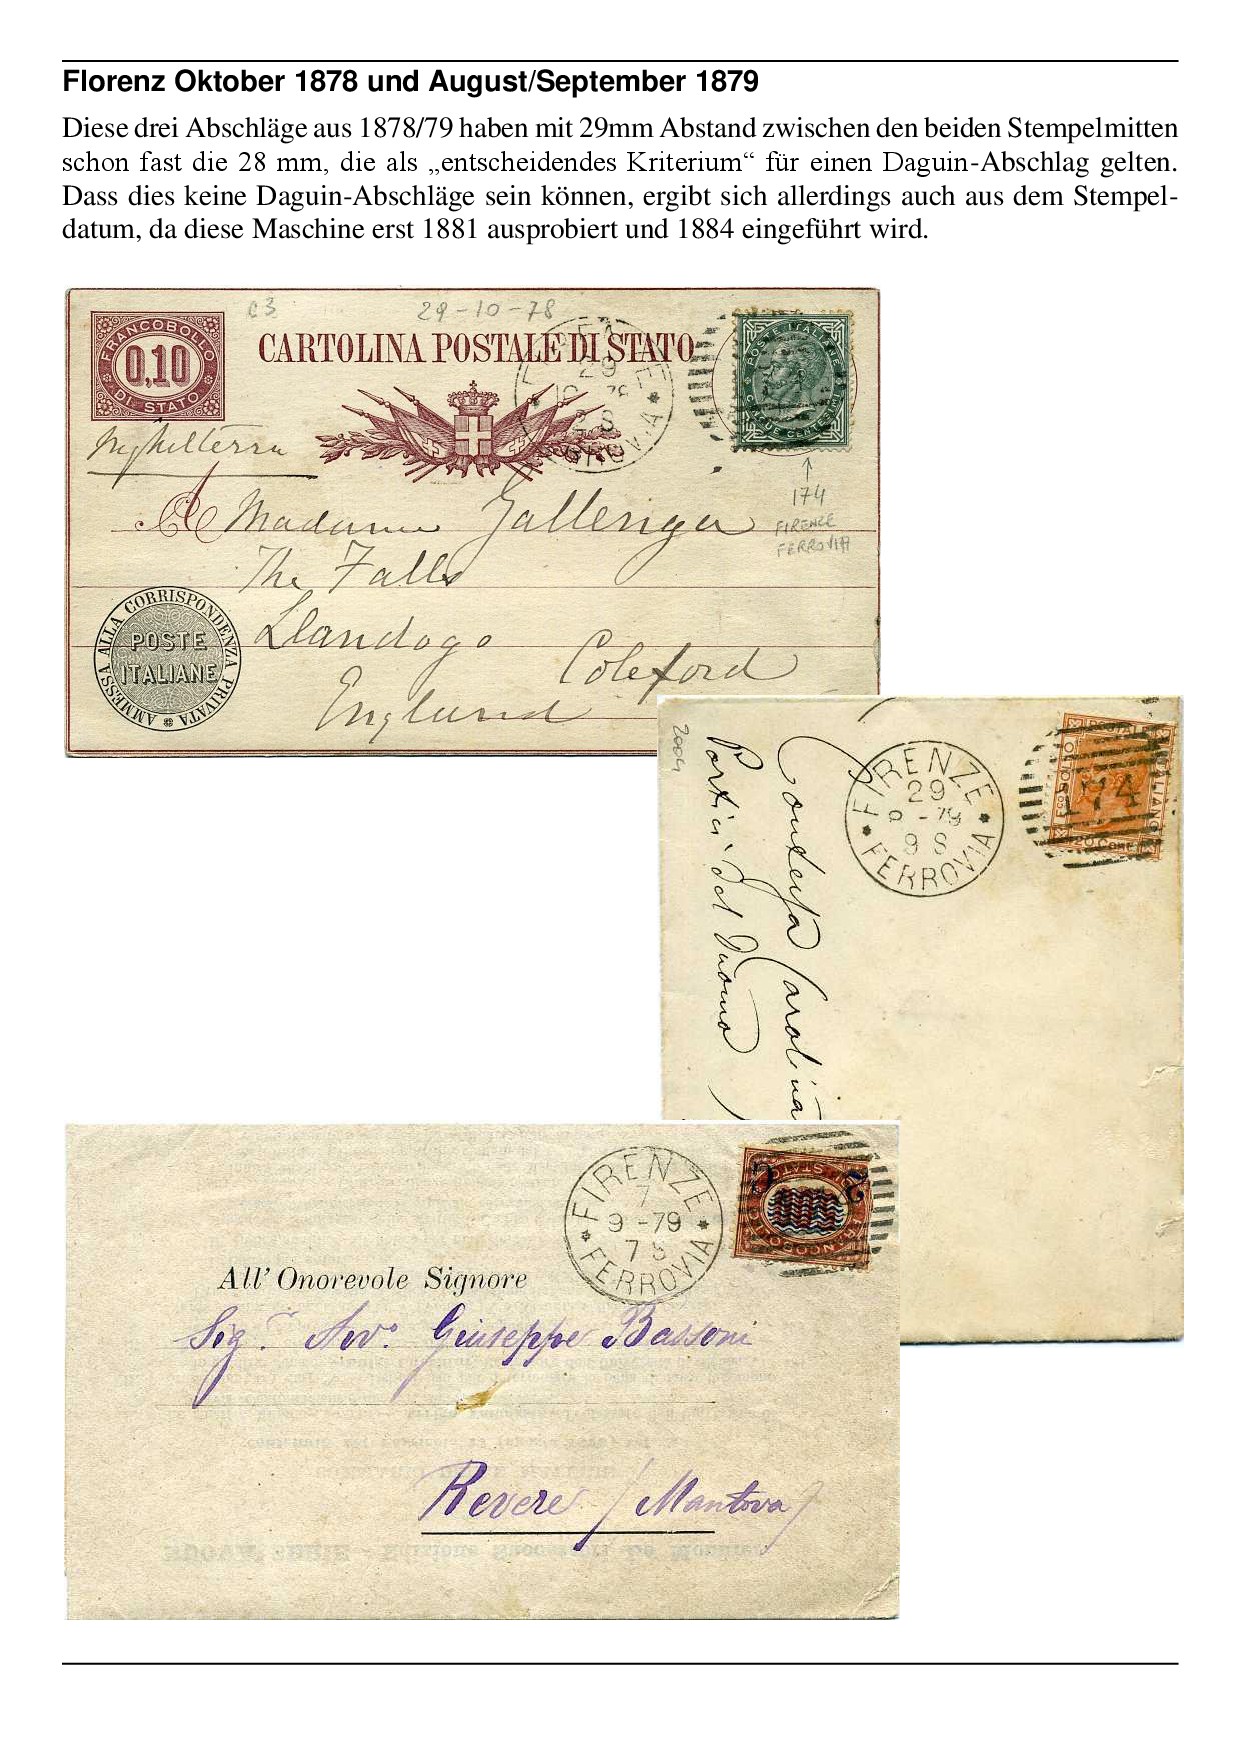 Florenz Oktober 1878 und August/September 1879
Diese drei Abschläge aus 1878/79 haben mit 29mm Abstand zwischen den beiden Stempelmitten
schon fast die 28 mm, die als „entscheidendes Kriterium“ für einen Daguin-Abschlag gelten.
Dass dies keine Daguin-Abschläge sein können, ergibt sich allerdings auch aus dem Stempel-
datum, da diese Maschine erst 1881 ausprobiert und 1884 eingeführt wird.
C3
29-10-78
FRANCOBOLLO
0,10
DI STATO
CARTOLINA POSTALE DI STATO
29
POSTE ITALIANE
CINQUE CENTESIMI
Inghilterra
174
FIRENZE
FERROVIA
A Madame Gallenga
The Falls
Llandogo
Coleford
England
AMMESSA ALLA CORRISPONDENZA PRIVATA
POSTE
ITALIANE
2009
FIRENZE
29
8 - 79
9 S
FERROVIA
174
20
Contessa Carolina
Portici del Duomo
FIRENZE
7
9 - 79
7 S
FERROVIA
2 C
All' Onorevole Signore
Sig. Avv. Giuseppe Bassoni
Revere (Mantova)